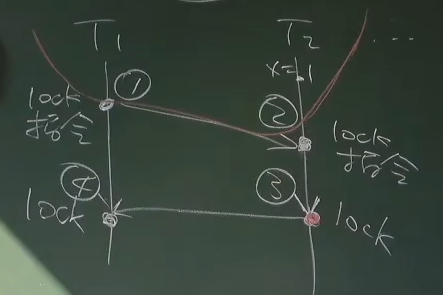 T₁ T₂ ...
x=1
① ②
lock
指令
lock
指令
④ ③
lock lock